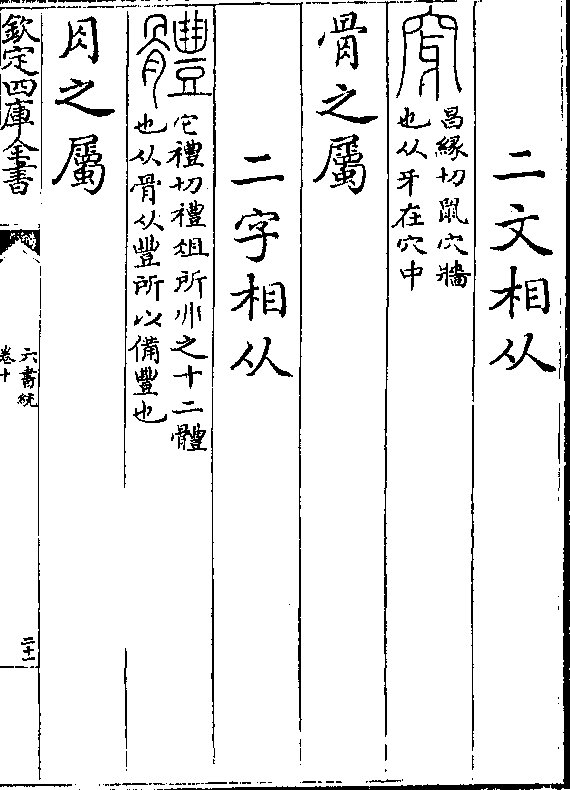 二文相从
穿
昌緣切鼠穴牆
也从牙在穴中
骨之屬
二字相从
體
它禮切禮俎所之十二體
也从骨从豐所以備豐也
肉之屬
欽定四庫全書
六書統
卷十
二十一